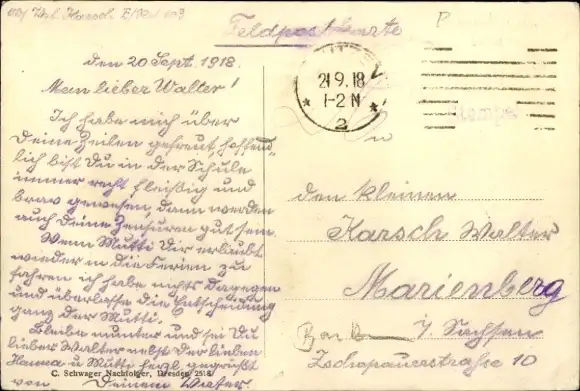 Feldpostkarte
den 20 Sept. 1918.
Mein lieber Walter!
Ich habe mich über
Deine Zeilen gefreut, hoffend-
lich bist Du in der Schule
immer recht fleißig und
brav gewesen, dann werden
auch Deine Zensuren gut sein.
Wenn Mutti Dir erlaubt
wieder in die Ferien zu
fahren ich habe nichts dagegen
und überlasse die Entscheidung
ganz der Mutti.
Bleibe munter und sei Du
lieber Walter nebst der lieben
Hanna u Mutti herzl. gegrüßt
von Deinem Vater.
C. Schwager Nachfolger, Dresden 2518
21.9.18
1-2 N
* *
2
den kleinen
Karsch Walter
Marienberg
i/ Sachsen
Zschopauerstrasse 10